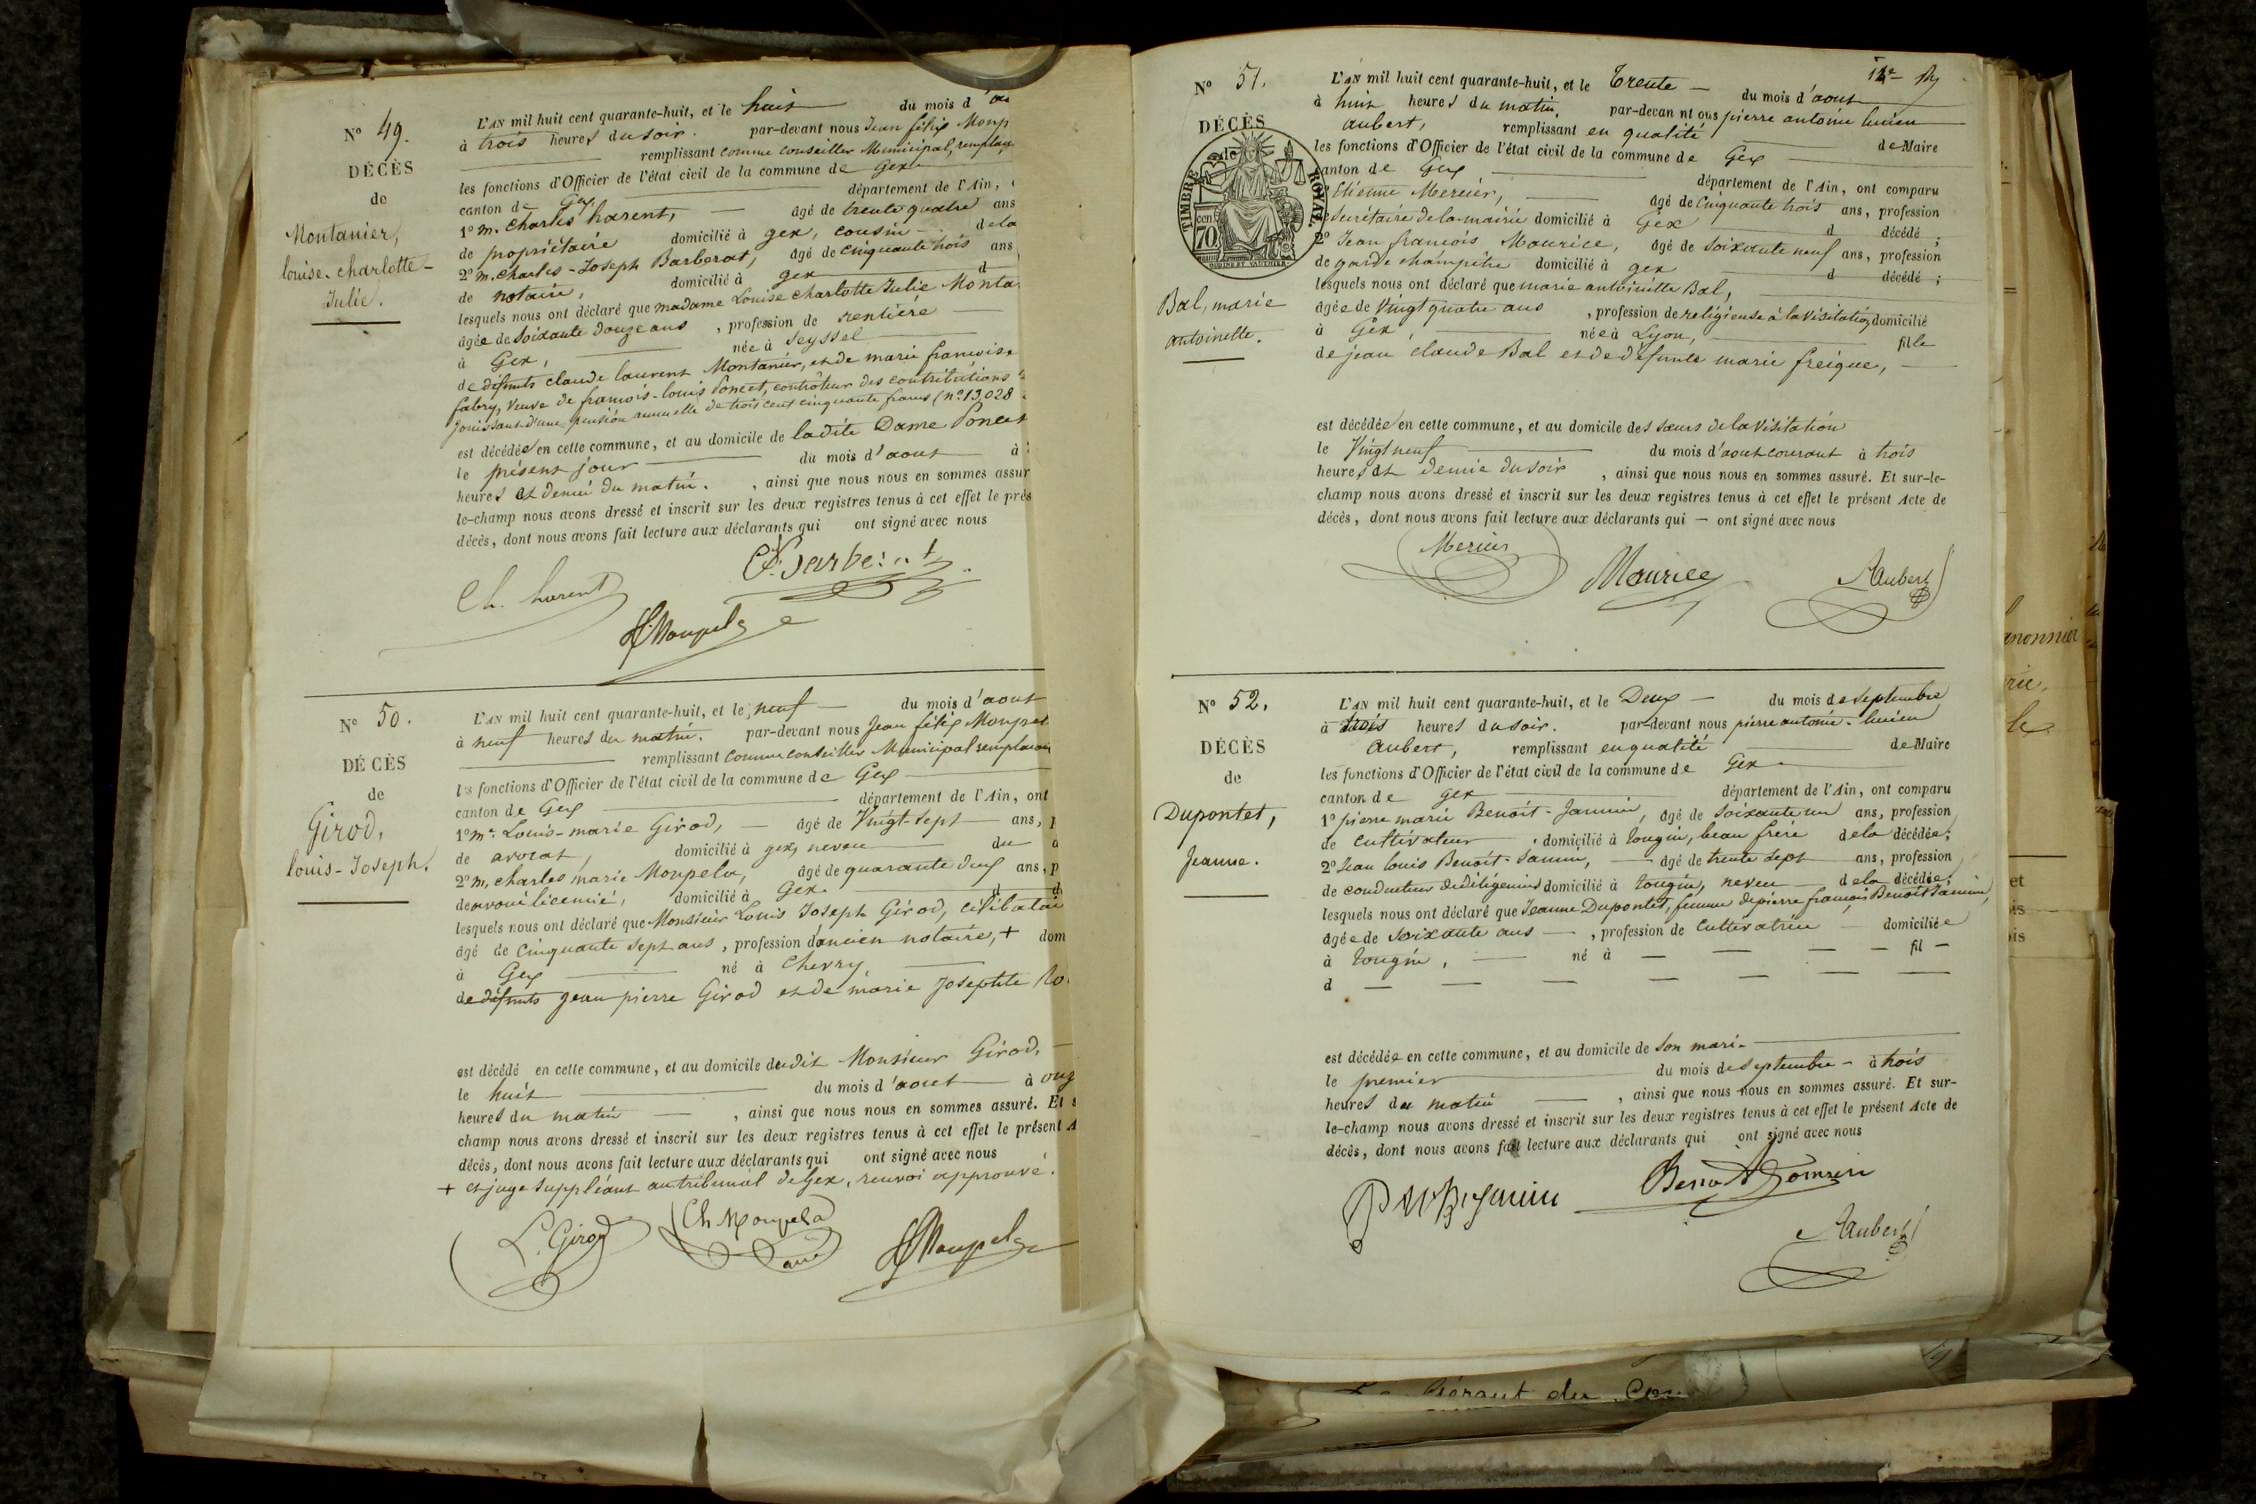 N° 49.
DÉCÈS
de
Montanier,
louise-charlotte-
Julie.
L'AN mil huit cent quarante-huit, et le huit du mois d'
à trois heures du soir. par-devant nous Jean félix
remplissant comme conseiller Municipal,
les fonctions d'Officier de l'état civil de la commune de Gex
canton de Gex, département de l'Ain,
1° m. Charles harent, âgé de trente quatre ans
de propriétaire domicilié à gex, cousin de la
2° m. Charles-Joseph Barberat, âgé de cinquante trois ans
de notaire, domicilié à gex d
lesquels nous ont déclaré que madame Louise Charlotte Julie
âgée de soixante douze ans, profession de rentière
à Gex, née à Seyssel
de défunts claude laurent Montanier, et de marie françoise
fabry, Veuve de françois-louis Poncet, contrôleur des contributions
Jouissant d'une pension annuelle de trois cent cinquante francs (n° 13,028
est décédée en cette commune, et au domicile de ladite Dame Poncet
le présent jour du mois d'aout à
heures et demie du matin. , ainsi que nous nous en sommes assur
le-champ nous avons dressé et inscrit sur les deux registres tenus à cet effet le prés
décès, dont nous avons fait lecture aux déclarants qui ont signé avec nous
Ch. harent
N° 50.
DÉCÈS
de
Girod,
louis-Joseph.
L'AN mil huit cent quarante-huit, et le neuf du mois d'aout
à neuf heures du matin. par-devant nous Jean félix
remplissant comme conseiller Municipal
les fonctions d'Officier de l'état civil de la commune de Gex
canton de Gex département de l'Ain, ont
1° mr. Louis-marie Girod, âgé de Vingt-sept ans,
de avocat, domicilié à gex, neveu du
2° m. charles marie Moupela, âgé de quarante deux ans,
de avoué licencié, domicilié à Gex. d
lesquels nous ont déclaré que Monsieur Louis Joseph Girod,
âgé de Cinquante sept ans, profession d'ancien notaire, + dom
à Gex né à Chevry
de défunts jean pierre Girod et de marie Josephte
est décédé en cette commune, et au domicile dudit Monsieur Girod,
le huit du mois d'aout à
heures du matin , ainsi que nous nous en sommes assuré. Et
champ nous avons dressé et inscrit sur les deux registres tenus à cet effet le présent
décès, dont nous avons fait lecture aux déclarants qui ont signé avec nous
+ et juge suppléant au tribunal de Gex, renvoi approuvé.
L. Girod
Ch Moupela
N° 51.
DÉCÈS
TIMBRE ROYAL
cen 70
Bal, marie
antoinette.
L'AN mil huit cent quarante-huit, et le Trente du mois d'aout
à huit heures du matin, par-devant nous pierre antoine lucien
aubert, remplissant en qualité de Maire
les fonctions d'Officier de l'état civil de la commune de Gex
canton de Gex département de l'Ain, ont comparu
Etienne Mercier, âgé de cinquante trois ans, profession
Secrétaire de la mairie domicilié à Gex d décédé ;
2° Jean françois Maurice, âgé de soixante neuf ans, profession
de garde champêtre domicilié à gex d décédé ;
lesquels nous ont déclaré que marie antoinette Bal,
âgée de Vingt quatre ans , profession de religieuse à la Visitation, domicilié
à Gex née à Lyon, fille
de jean claude Bal et de défunte marie freique,
est décédée en cette commune, et au domicile des sœurs de la Visitation
le Vingt neuf du mois d'aout courant à trois
heures et demie du soir , ainsi que nous nous en sommes assuré. Et sur-le-
champ nous avons dressé et inscrit sur les deux registres tenus à cet effet le présent Acte de
décès, dont nous avons fait lecture aux déclarants qui — ont signé avec nous
Mercier
Maurice
Aubert
N° 52.
DÉCÈS
de
Dupontet,
Jeanne.
L'AN mil huit cent quarante-huit, et le Deux du mois de septembre
à trois heures du soir. par-devant nous pierre antoine-lucien
aubert, remplissant en qualité de Maire
les fonctions d'Officier de l'état civil de la commune de Gex
canton de gex département de l'Ain, ont comparu
1° pierre marie Benoit-Janin, âgé de soixante un ans, profession
de cultivateur domicilié à tougin, beau frère de la décédée ;
2° Jean louis Benoit-Janin, âgé de trente sept ans, profession
de conducteur de diligences domicilié à tougin, neveu de la décédée ;
lesquels nous ont déclaré que Jeanne Dupontet, femme de pierre françois Benoit Janin,
âgée de soixante ans , profession de cultivatrice domiciliée
à tougin, né à fil
d
est décédée en cette commune, et au domicile de son mari.
le premier du mois de septembre à trois
heures du matin , ainsi que nous nous en sommes assuré. Et sur-
le-champ nous avons dressé et inscrit sur les deux registres tenus à cet effet le présent Acte de
décès, dont nous avons fait lecture aux déclarants qui ont signé avec nous
Aubert